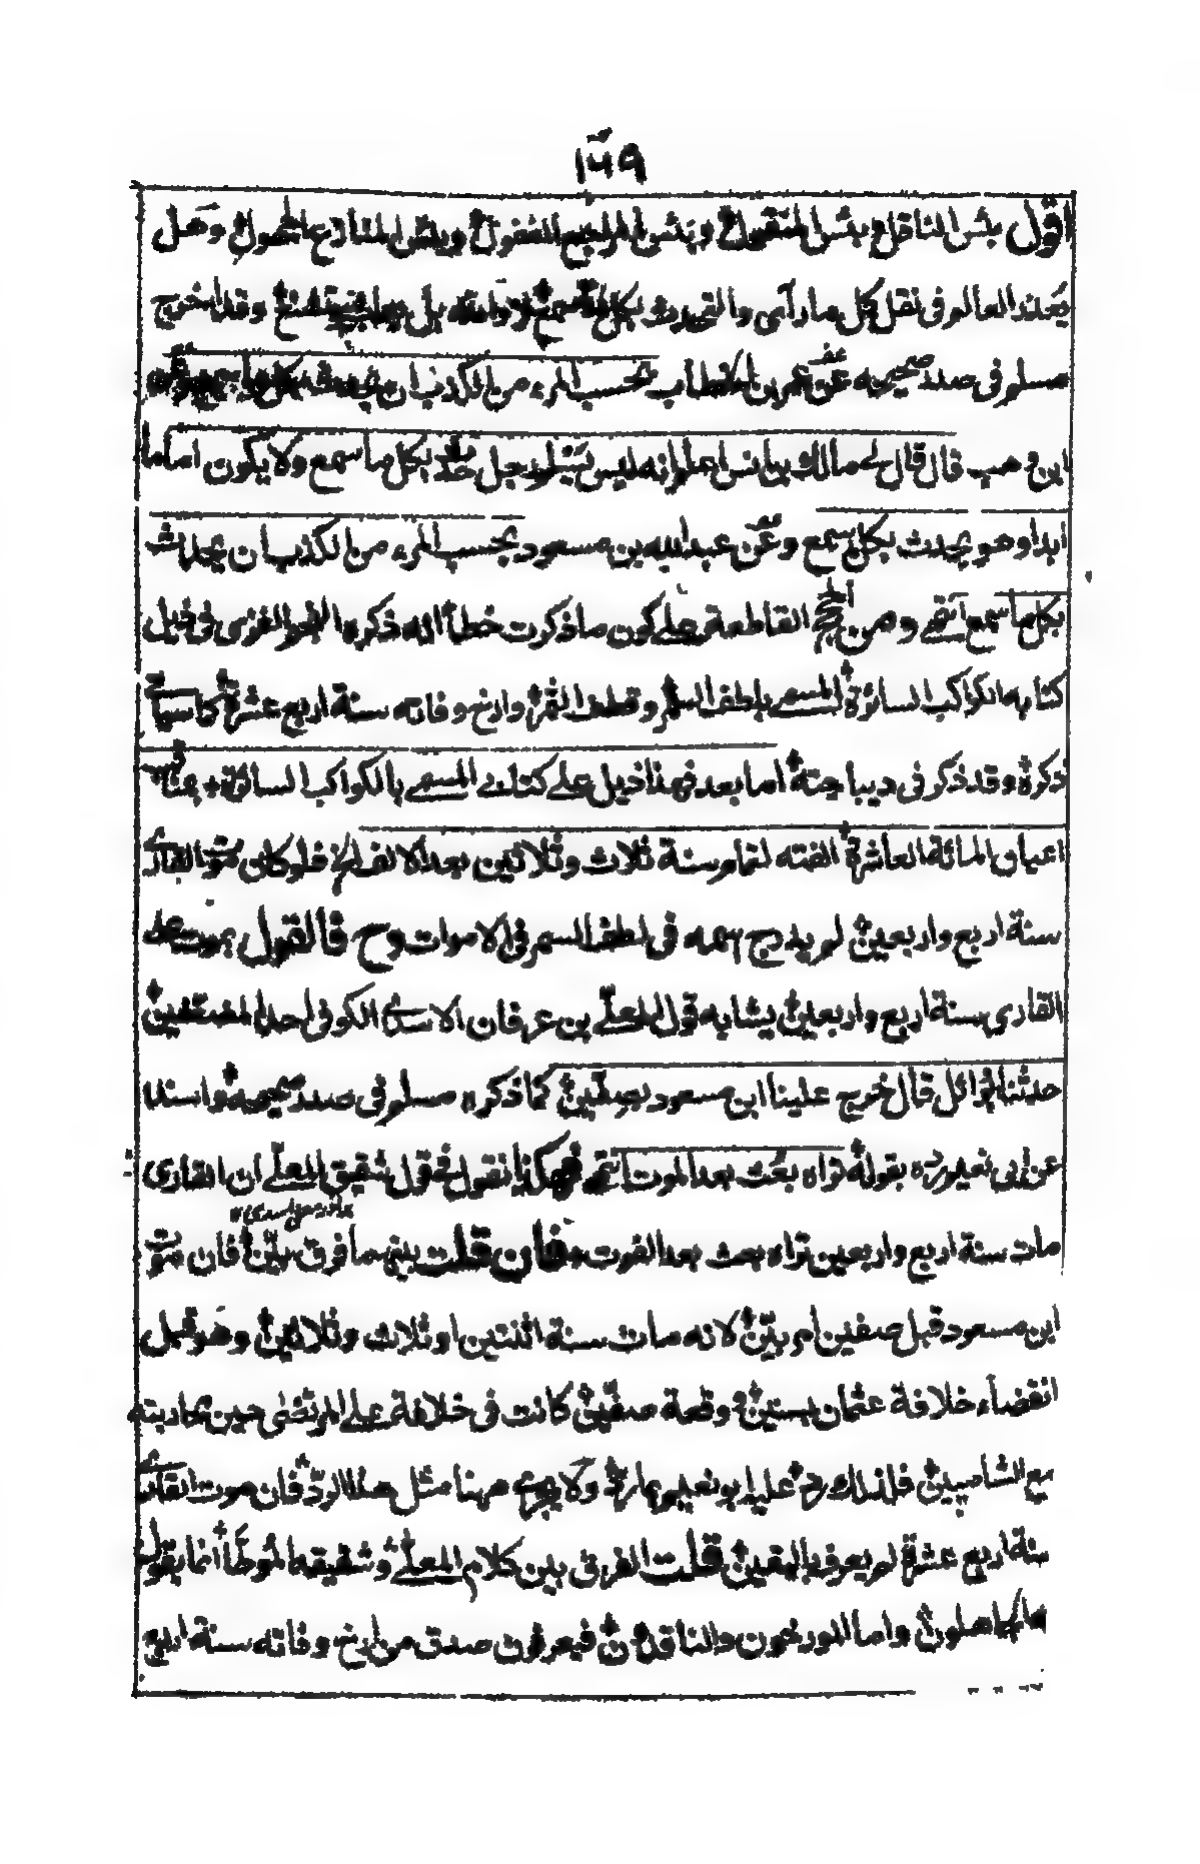 ۱۶۹
اقول بئس الناقل و بئس المنقول و بئس المرجع المغفول و بئس المنازع المجهول و هل
يعذر العالم فى نقل كل ما رأى و التحديث بكل ما سمع و قد اخرج
مسلم فى صدر صحيحه عن عمر بن الخطاب بحسب المرء من الكذب ان يحدث بكل ما سمع
ابن وهب قال قال لى مالك بن انس اعلم انه ليس يسلم رجل حدث بكل ما سمع ولا يكون اماما
ابدا و هو يحدث بكل ما سمع و عن عبد الله بن مسعود بحسب المرء من الكذب ان يحدث
بكل ما سمع انتهى و من الحجج القاطعة على كون ما ذكرت خطأ انه ذكره النجم الغزى فى ذيل
كتابه الكواكب السائرة المسمى بلطف السمر و قطف الثمر و ارخ وفاته سنة اربع عشرة كما سياتى
ذكره و قد ذكر فى ديباجته اما بعد فهذا ذيل على كتابى المسمى بالكواكب السائرة بمناقب
اعيان المائة العاشرة الفته لتمام سنة ثلاث و ثلاثين بعد الالف الخ فلو كان موت القارى
سنة اربع و اربعين لم يدرج اسمه فى لطف السمر فى الاموات و ح فالقول بموت على
القارى سنة اربع و اربعين يشابه قول المعلى بن عرفان الاسدى الكوفى احد المضعفين
حدثنا ابو وائل قال خرج علينا ابن مسعود بصفين كما ذكره مسلم فى صدر صحيحه و اسنده
عن ابى نعيم رده بقوله تراه بعث بعد الموت انتهى فهكذا نقول فى قول شقيق المعلى ان القارى
مات سنة اربع و اربعين تراه بعث بعد الموت فان قلت بينهما فرق بين فان موت
ابن مسعود قبل صفين امر بين لانه مات سنة اثنتين او ثلاث و ثلاثين و هو قبل
انقضاء خلافة عثمان بسنين و وقعة صفين كانت فى خلافة على المرتضى حين محاربته
مع الشاميين فلذلك رد عليه ابو نعيم بما رد ولا يجرى ههنا مثل هذا الرد فان موت القارى
سنة اربع عشرة لم يعرف باليقين قلت الفرق بين كلام المعلى و شقيقه الموطأ انما يقول
به الجاهلون و اما المورخون و الناقلون فيعرفون صدق من ارخ وفاته سنة اربع